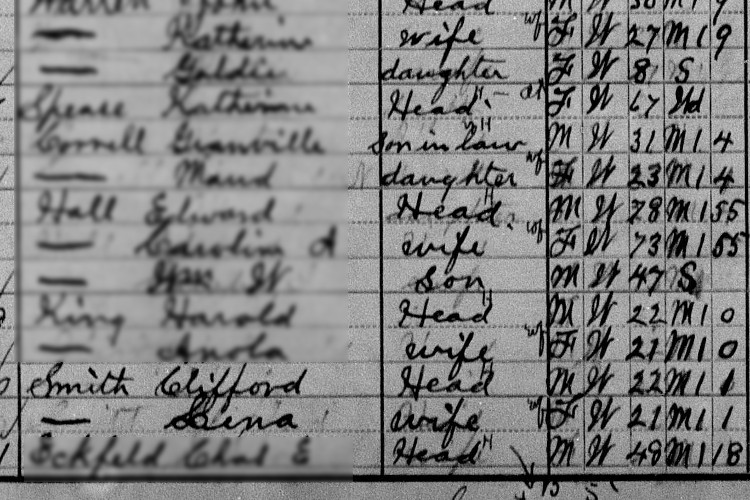 Head M W
Katherine wife F W 27 M1 9
Goldie daughter F W 8 S
Spease Katherine Head F W 67 Wd
Cornell Granville son in law M W 31 M1 4
— Maud daughter F W 23 M1 4
Hall Edward Head M W 78 M1 55
— Caroline A wife F W 73 M1 55
— W son M W 47 S
King Harold Head M W 22 M1 0
— wife F W 21 M1 0
Smith Clifford Head M W 22 M1 1
— Lena wife F W 21 M1 1
Eckfeld Chas E Head M W 48 M1 18